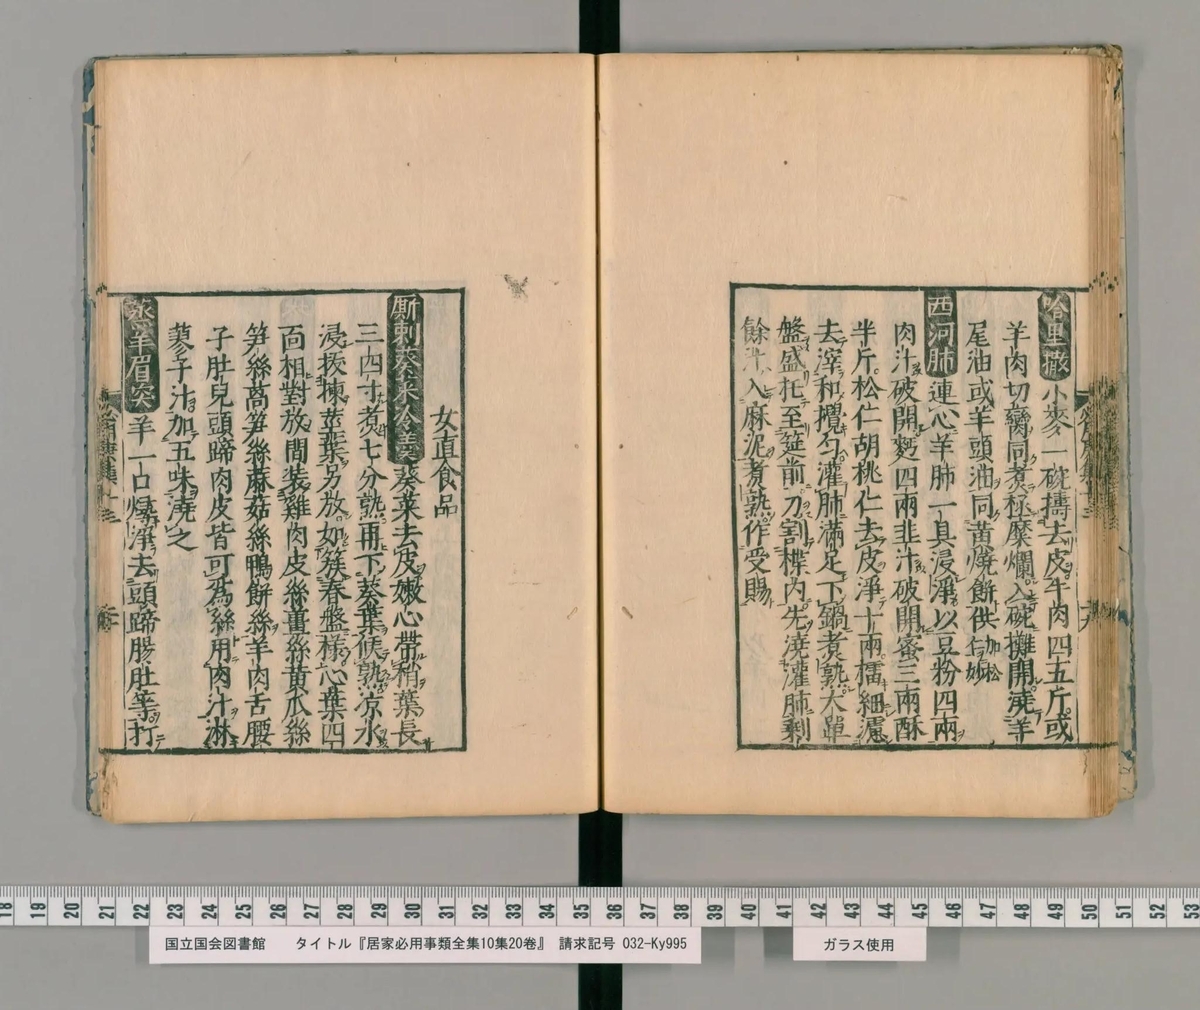 哈里撒 小麥一碗擣去皮牛肉四五斤或
羊肉切臠同煮極糜爛入碗攤開澆羊
尾油或羊頭油同黃燒餅供 加松仁妙
西河肺 連心羊肺一具浸淨以豆粉四兩
肉汁破開麪四兩韭汁破開蜜三兩酥
半斤松仁胡桃仁去皮淨十兩擂細濾
去滓和攪勻灌肺滿足下鍋煮熟大單
盤盛托至筵前刀割楪內先澆灌肺剩
餘汁入麻泥煮熟作受賜
女直食品
厮剌葵菜冷羹 葵菜去皮嫩心帶稍葉長
三四寸煮七分熟再下葵葉候熟凉水
浸拔揀莖葉另放如簇春盤樣心葉四
面相對放間裝雞肉皮絲薑絲黃瓜絲
笋絲萵笋絲蘑菇絲鴨餅絲羊肉舌腰
子肚兒頭蹄肉皮皆可爲絲用肉汁淋
蓼子汁加五味澆之
蒸羊眉突 羊一口燖淨去頭蹄腸肚等打
国立国会図書館 タイトル『居家必用事類全集10集20巻』 請求記号 032-Ky995
ガラス使用
18 19 20 21 22 23 24 25 26 27 28 29 30 31 32 33 34 35 36 37 38 39 40 41 42 43 44 45 46 47 48 49 50 51 52 53